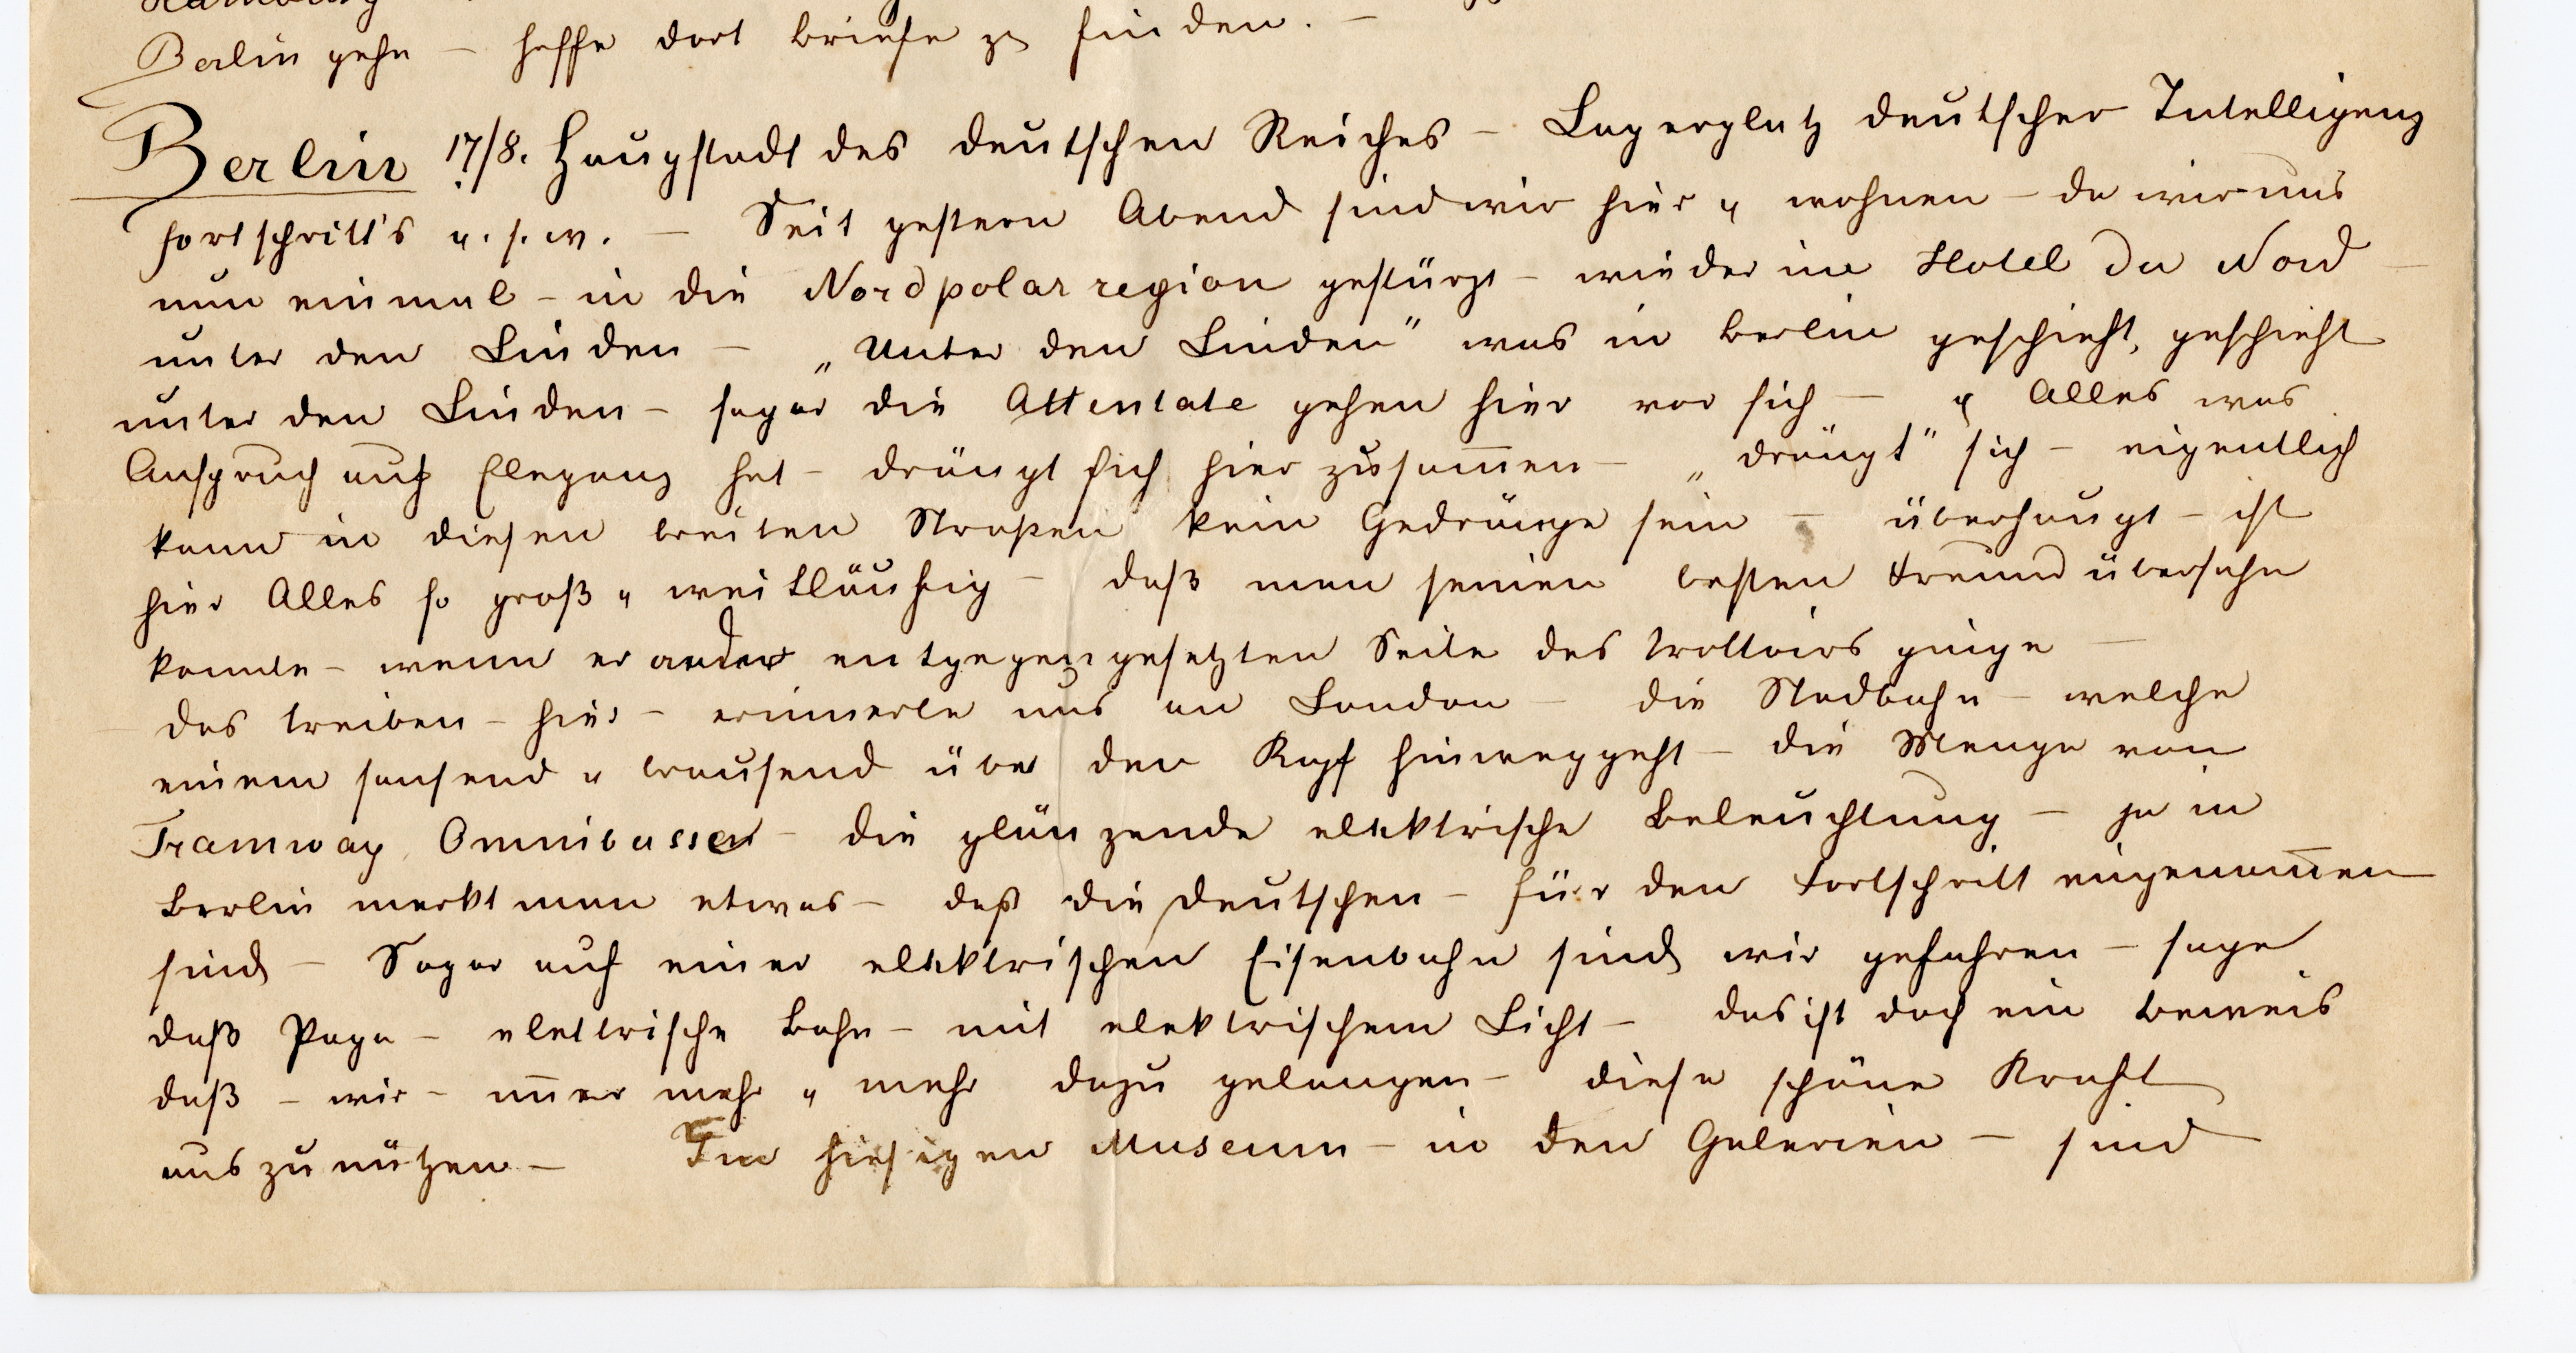 Hamburg
Berlin gehe – hoffe dort Briefe zu finden. –
Berlin 17/8. Haupstadt des deutschen Reiches – Lagerplatz deutscher Intelligenz
fortschritt's u. s. w. – Seit gestern Abend sind wir hier u wohnen – da wir uns
nun einmal – in die Nordpolarregion gestürzt – wieder im Hotel du Nord –
unter den Linden – „Unter den Linden" was in Berlin geschieht, geschieht
unter den Linden – sogar die Attentate gehen hier vor sich – u Alles was
Anspruch auf Eleganz hat – drängt sich hier zusam̅en – „drängt" sich – eigentlich
kann in diesen breiten Straßen kein Gedränge sein – überhaupt – ist
hier Alles so groß u weitläufig – daß man seinen besten Freund übersehe
konnte – wenn er an der entgegengesetzten Seite des trottoirs ginge –
das treiben – hier – erinnerte uns an London – die Stadbahn – welche
einem sausend u brausend über den Kopf hinweggeht – die Menge von
Tramway, Omnibusse – die glänzende elektrische Beleuchtung – ja in
Berlin merkt man etwas – daß die deutschen – für den Fortschritt eingenom̅en
sind – Sogar auf einer elektrischen Eisenbahn sind wir gefahren – sage
daß Papa – elettrische Bahn – mit elektrischem Licht – das ist doch ein beweis
daß – wir – im̅er mehr u mehr dazu gelangen – diese schöne Kraft
auszunützen – Im hiesigen Museum – in den Galerien – sind